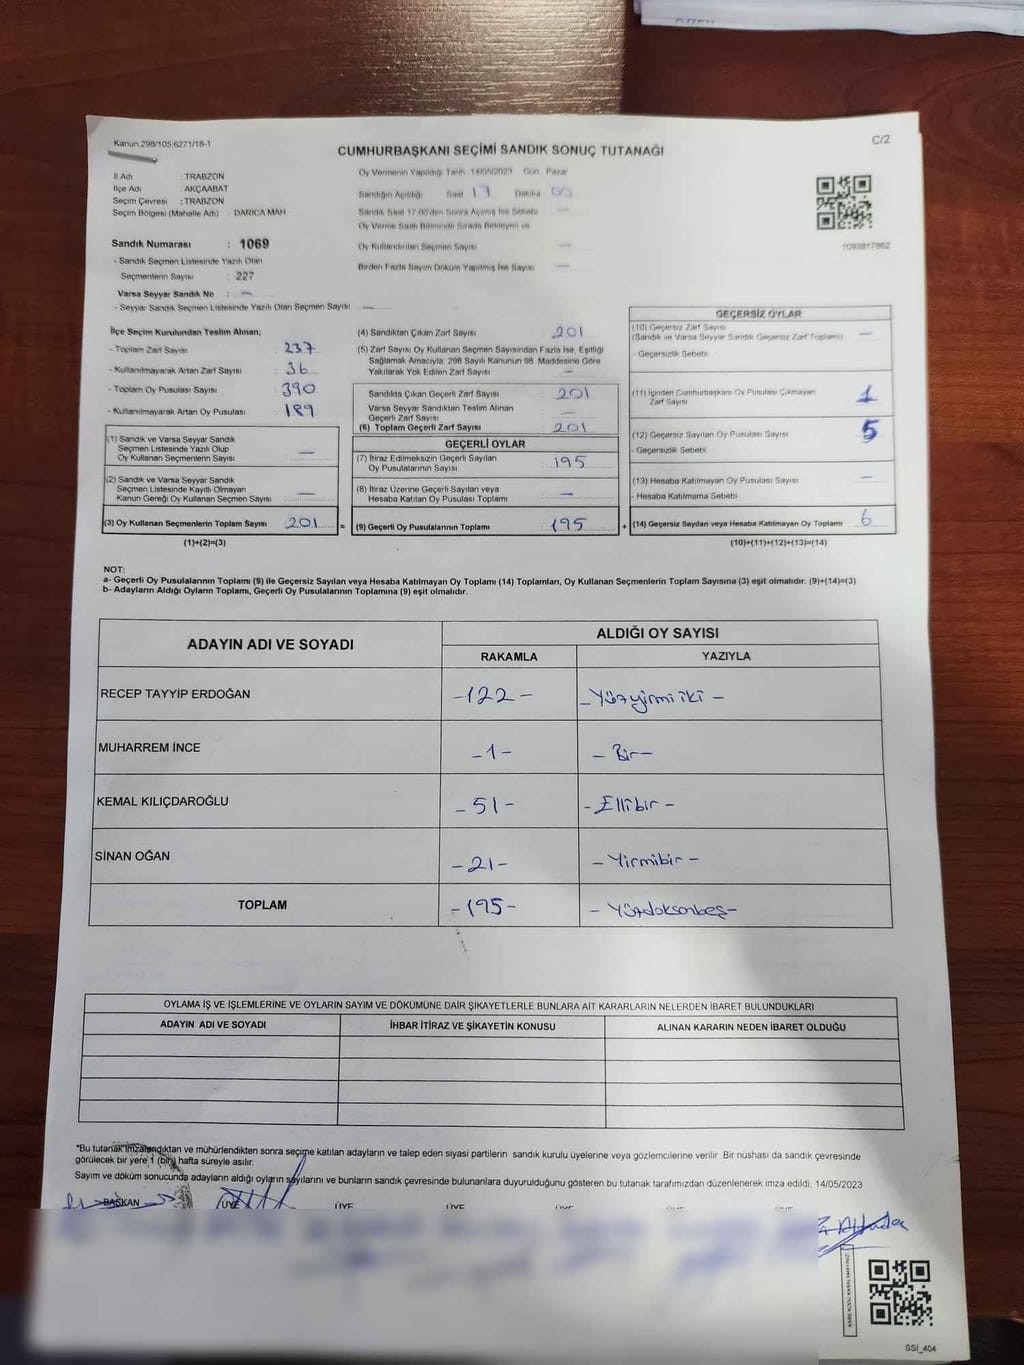 Kanun,298/105,6271/18-1
C/2
CUMHURBAŞKANI SEÇİMİ SANDIK SONUÇ TUTANAĞI
İl Adı : TRABZON
İlçe Adı : AKÇAABAT
Seçim Çevresi : TRABZON
Seçim Bölgesi (Mahalle Adı) : DARICA MAH
Oy Vermenin Yapıldığı Tarih 14/05/2023 Gün Pazar
Sandığın Açıldığı Saat 17 Dakika 00
Sandık Saat 17.00'den Sonra Açılmış İse Sebebi —
Oy Verme Saati Bitiminde Sırada Bekleyen ve
Oy Kullandırılan Seçmen Sayısı —
Birden Fazla Sayım Döküm Yapılmış İse Sayısı —
1093817862
Sandık Numarası : 1069
- Sandık Seçmen Listesinde Yazılı Olan
Seçmenlerin Sayısı : 227
Varsa Seyyar Sandık No : —
- Seyyar Sandık Seçmen Listesinde Yazılı Olan Seçmen Sayısı : —
İlçe Seçim Kurulundan Teslim Alınan;
- Toplam Zarf Sayısı : 237
- Kullanılmayarak Artan Zarf Sayısı : 36
- Toplam Oy Pusulası Sayısı : 390
- Kullanılmayarak Artan Oy Pusulası : 189
(1) Sandık ve Varsa Seyyar Sandık
Seçmen Listesinde Yazılı Olup
Oy Kullanan Seçmenlerin Sayısı —
(2) Sandık ve Varsa Seyyar Sandık
Seçmen Listesinde Kayıtlı Olmayan
Kanun Gereği Oy Kullanan Seçmen Sayısı —
(3) Oy Kullanan Seçmenlerin Toplam Sayısı 201 =
(1)+(2)=(3)
(4) Sandıktan Çıkan Zarf Sayısı 201
(5) Zarf Sayısı Oy Kullanan Seçmen Sayısından Fazla İse, Eşitliği
Sağlamak Amacıyla; 298 Sayılı Kanunun 98. Maddesine Göre
Yakılarak Yok Edilen Zarf Sayısı —
Sandıkta Çıkan Geçerli Zarf Sayısı : 201
Varsa Seyyar Sandıktan Teslim Alınan
Geçerli Zarf Sayısı —
(6) Toplam Geçerli Zarf Sayısı : 201
GEÇERLİ OYLAR
(7) İtiraz Edilmeksizin Geçerli Sayılan
Oy Pusulalarının Sayısı : 195
(8) İtiraz Üzerine Geçerli Sayılan veya
Hesaba Katılan Oy Pusulası Toplamı : —
(9) Geçerli Oy Pusulalarının Toplamı : 195 +
GEÇERSİZ OYLAR
(10) Geçersiz Zarf Sayısı
(Sandık ve Varsa Seyyar Sandık Geçersiz Zarf Toplamı) —
- Geçersizlik Sebebi
(11) İçinden Cumhurbaşkanı Oy Pusulası Çıkmayan
Zarf Sayısı 1
(12) Geçersiz Sayılan Oy Pusulası Sayısı 5
- Geçersizlik Sebebi
(13) Hesaba Katılmayan Oy Pusulası Sayısı —
- Hesaba Katılmama Sebebi
(14) Geçersiz Sayılan veya Hesaba Katılmayan Oy Toplamı 6
(10)+(11)+(12)+(13)=(14)
NOT:
a- Geçerli Oy Pusulalarının Toplamı (9) ile Geçersiz Sayılan veya Hesaba Katılmayan Oy Toplamı (14) Toplamları, Oy Kullanan Seçmenlerin Toplam Sayısına (3) eşit olmalıdır. (9)+(14)=(3)
b- Adayların Aldığı Oyların Toplamı, Geçerli Oy Pusulalarının Toplamına (9) eşit olmalıdır.
ADAYIN ADI VE SOYADI
ALDIĞI OY SAYISI
RAKAMLA YAZIYLA
RECEP TAYYİP ERDOĞAN -122- -Yüzyirmiiki-
MUHARREM İNCE -1- -Bir-
KEMAL KILIÇDAROĞLU -51- -Ellibir-
SİNAN OĞAN -21- -Yirmibir-
TOPLAM -195- -Yüzdoksanbeş-
OYLAMA İŞ VE İŞLEMLERİNE VE OYLARIN SAYIM VE DÖKÜMÜNE DAİR ŞİKAYETLERLE BUNLARA AİT KARARLARIN NELERDEN İBARET BULUNDUKLARI
ADAYIN ADI VE SOYADI İHBAR İTİRAZ VE ŞİKAYETİN KONUSU ALINAN KARARIN NEDEN İBARET OLDUĞU
*Bu tutanak imzalandıktan ve mühürlendikten sonra seçime katılan adayların ve talep eden siyasi partilerin sandık kurulu üyelerine veya gözlemcilerine verilir. Bir nüshası da sandık çevresinde
görülecek bir yere 1 (bir) hafta süreyle asılır.
Sayım ve döküm sonucunda adayların aldığı oyların sayılarını ve bunların sandık çevresinde bulunanlara duyurulduğunu gösteren bu tutanak tarafımızdan düzenlenerek imza edildi. 14/05/2023
BAŞKAN ÜYE ÜYE ÜYE ÜYE ÜYE
SSI_404